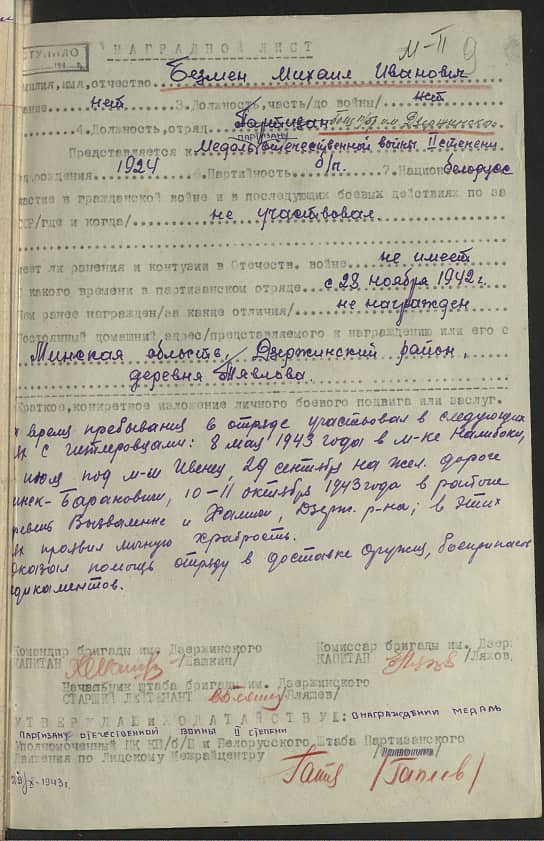 СТУПИЛО
НАГРАДНОЙ ЛИСТ
М-II 9
милия,имя,отчество Безмен Михаил Иванович
ание нет 3.Должность,часть/до войны/ нет
4.Должность,отряд Партизан
Представляется к Медаль партизану отечественной войны II степени
1924 6.Партийность б/п. 7.Национ белорусс
частие в гражданской войне и в последующих боевых действиях по за
СР/где и когда/ не участвовал
меет ли ранения и контузии в Отечеств. войне не имеет
какого времени в партизанском отряде с 28 ноября 1942 г.
Чем ранее награжден/за какие отличия/ не награжден
Постоянный домашний адрес/представляемого к награждению или его с
Минская область, Дзержинский район,
деревня Тявлова.
Краткое,конкретное изложение личного боевого подвига или заслуг.
время пребывания в отряде участвовал в следующих
х с гитлеровцами: 8 мая 1943 года в м-ке Налибоки,
июля под м-м Ивенец, 29 сентября на жел. дороге
инск-Барановичи, 10-11 октября 1943 года в районе
и Дзерж. р-на; в этих
х проявил личную храбрость.
Оказал помощь отряду в доставке оружия, боеприпасов
дикаментов.
Командир бригады им. Дзержинского Комиссар бригады им. Дзер
КАПИТАН /Шашкин/ КАПИТАН /Ляхов
Начальник штаба бригады им. Дзержинского
СТАРШИЙ ЛЕЙТЕНАНТ /Вляшев/
УТВЕРЖДАЮ и ХОДАТАЙСТВУЮ: о награждении медаль
партизану отечественной войны II степени
Уполномоченный ЦК КП/б/Б и Белорусского Штаба Партизанского
Движения по Лидскому Межрайцентру
1943г.